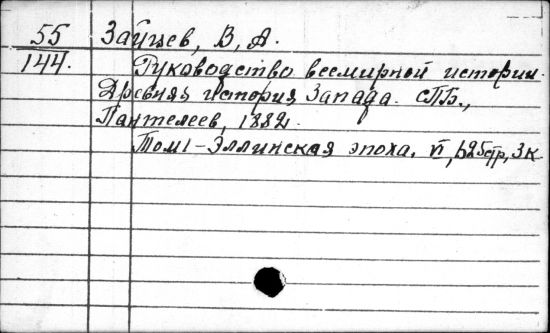 55 Зайцев, В, А.
144. Руководство всемирной истории.
Древняя история Запада. СПБ.,
Пантелеев, 1882.
Том 1 - Эллинская эпоха. VI, 625стр, 3к